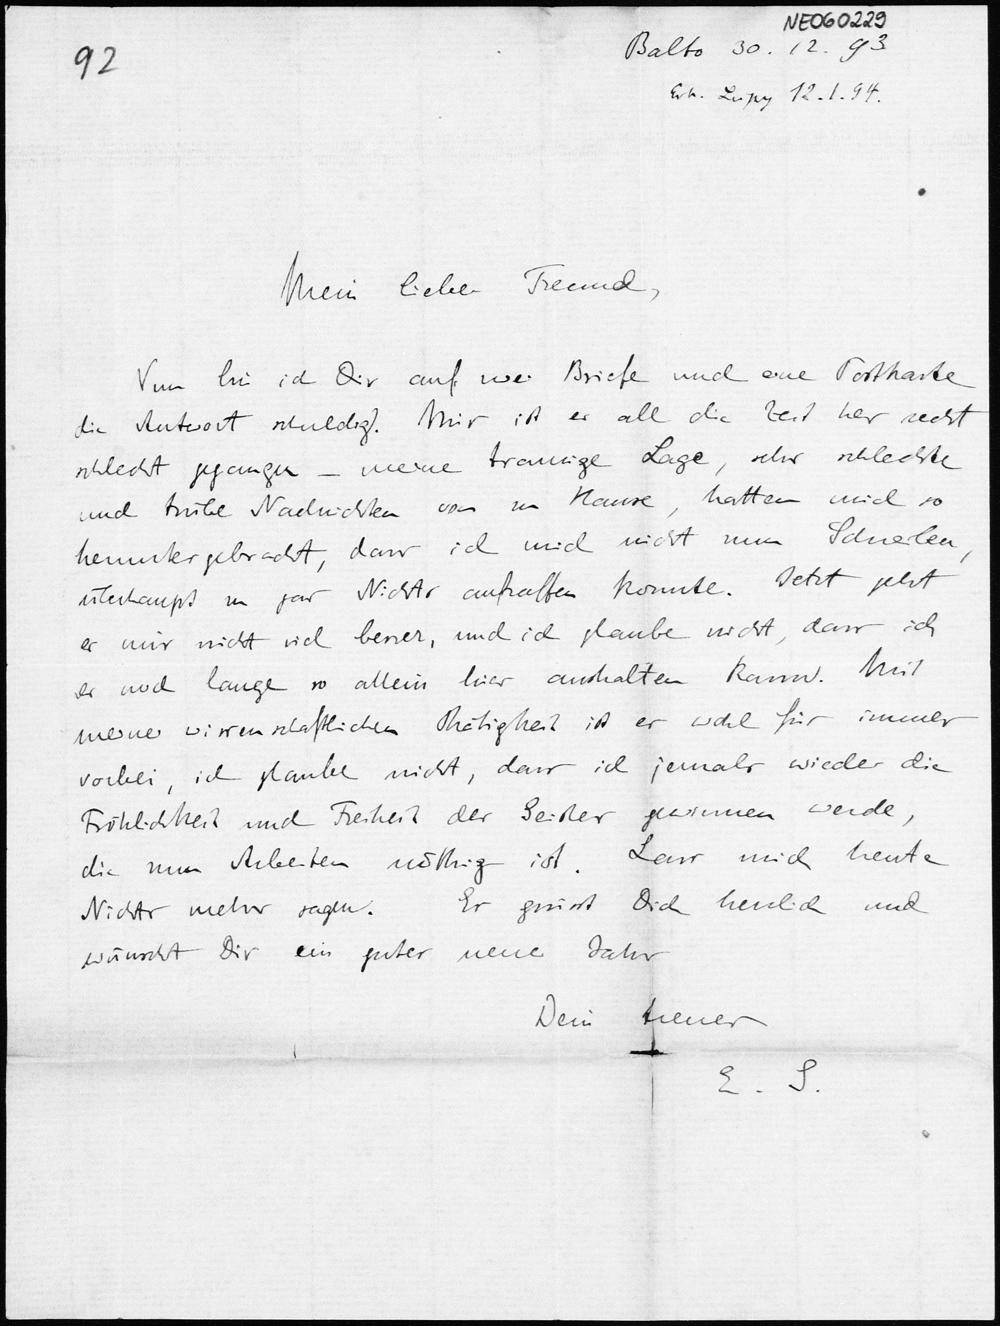 NE060229
92
Balto 30.12.93
Erh. Lupzg 12.1.94.
Mein lieber Freund,
Nun bin ich Dir auf zwei Briefe und eine Postkarte
die Antwort schuldig. Mir ist es all die Zeit her recht
schlecht gegangen – meine traurige Lage, sehr schlechte
und trübe Nachrichten von zu Hause, hatten mich so
heruntergebracht, dass ich mich nicht zum Schreiben,
überhaupt zu gar Nichts aufraffen konnte. Jetzt geht
es mir nicht viel besser, und ich glaube nicht, dass ich
es noch lange so allein hier aushalten kann. Mit
meiner wissenschaftlichen Thätigkeit ist es wohl für immer
vorbei, ich glaube nicht, dass ich jemals wieder die
Fröhlichkeit und Freiheit des Geistes gewinnen werde,
die zum Arbeiten nöthig ist. Lass mich heute
Nichts mehr sagen. Es grüsst Dich herzlich und
wünscht Dir ein gutes neues Jahr
Dein treuer
E. S.